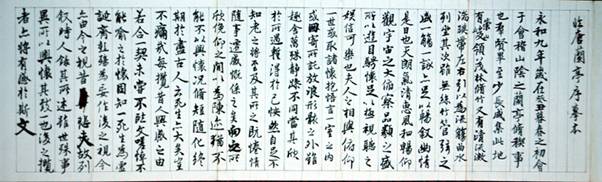 臨唐蘭亭序摹本
永和九年歲在癸丑暮春之初會
于會稽山陰之蘭亭脩稧事
也羣賢畢至少長咸集此地
有崇山峻領茂林脩竹又有清流激
湍暎帶左右引以為流觴曲水
列坐其次雖無絲竹管弦之
盛一觴一詠亦足以暢敘幽情
是日也天朗氣清惠風和暢仰
觀宇宙之大俯察品類之盛
所以遊目騁懷足以極視聽之
娛信可樂也夫人之相與俯仰
一世或取諸懷抱悟言一室之內
或因寄所託放浪形骸之外雖
趣舍萬殊靜躁不同當其欣
於所遇暫得於己怏然自足不
知老之將至及其所之既惓情
隨事遷感慨係之矣向之所
欣俛仰之間以為陳迹猶不
能不以之興懷況脩短隨化終
期於盡古人云死生亦大矣豈
不痛哉每攬昔人興感之由
若合一契未嘗不臨文嗟悼不
能喻之於懷固知一死生為虛
誕齊彭殤為妄作後之視今
亦由今之視昔悲夫故列
敘時人錄其所述雖世殊事
異所以興懷其致一也後之攬
者亦將有感於斯文